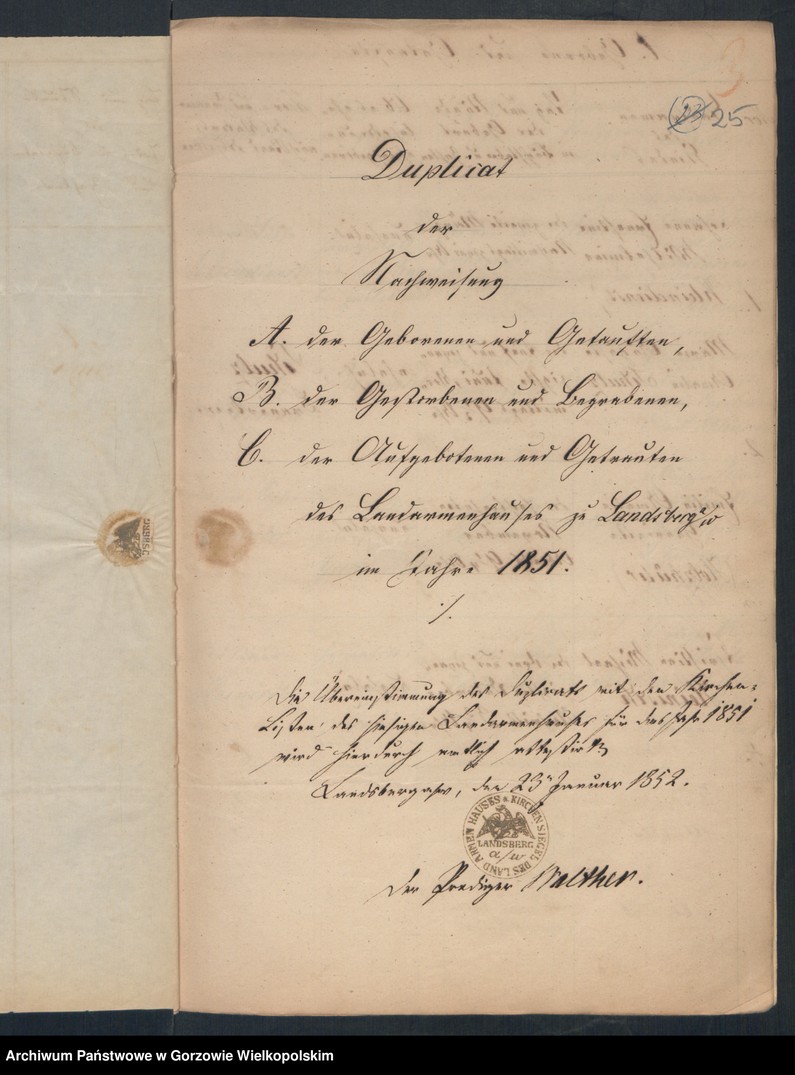 23 25
Duplicat
der
Nachweisung
A. der Geborenen und Getauften,
B. der Gestorbenen und Begrabenen,
C. der Aufgebotenen und Getrauten
des Landarmenhauses zu Landsberg a/w
im Jahre 1851.
./.
Die Übereinstimmung des Duplicats mit den Kirchen-
Listen des hiesigen Landarmenhauses für das Jahr 1851
wird hierdurch amtlich attestirt.
Landsberg a/w, den 23 Januar 1852.
HAUSES & KIRCHEN SIEGEL DES LAND ARMEN
LANDSBERG
a/w
Der Prediger Walther.
Archiwum Państwowe w Gorzowie Wielkopolskim